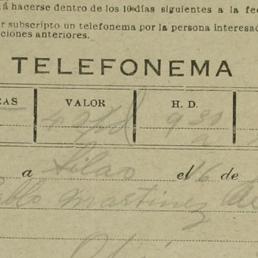 á hacerse dentro de los 10 días siguientes a la fec
r subscripto un telefonema por la persona interesa
ciones anteriores.
TELEFONEMA
RAS VALOR H. D.
9 30
a Silao el 16 de
Pablo Martinez